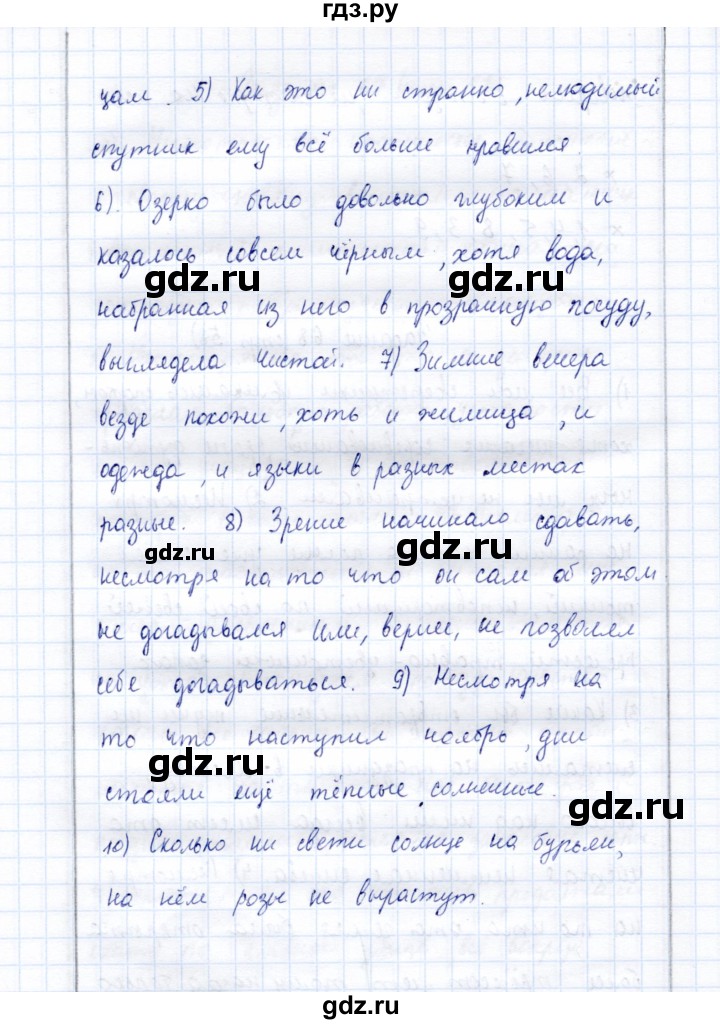 гдз.ру
цам. 5) Как это ни странно, нелюдимый
спутник ему всё больше нравился.
6). Озерко было довольно глубоким и
казалось совсем чёрным, хотя вода,
gdz.ru gdz.ru
набранная из него в прозрачную посуду,
выглядела чистой. 7) Зимние вечера
везде похожи, хоть и жилища, и
одежда, и языки в разных местах
разные. 8) Зрение начинало сдавать,
gdz.ru gdz.ru
несмотря на то что он сам об этом
не догадывался или, вернее, не позволял
себе догадываться. 9) Несмотря на
то что наступил ноябрь, дни
gdz.ru
стояли ещё тёплые, солнечные.
10) Сколько ни свети солнце на бурьян,
gdz.ru
на нём розы не вырастут.
gdz.ru